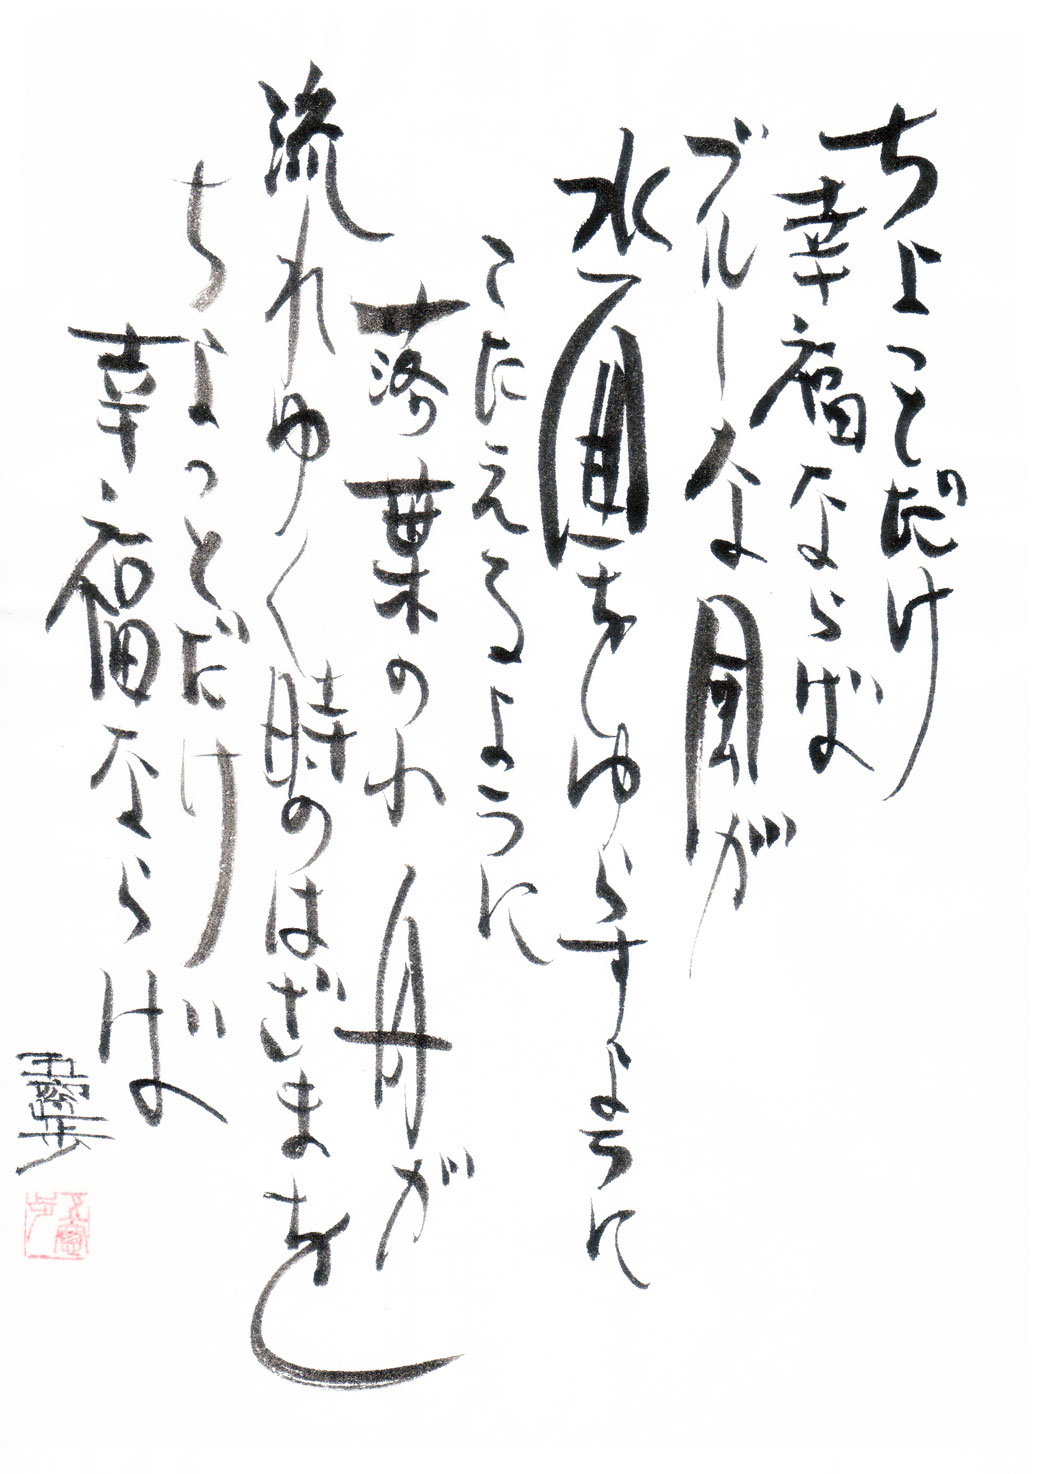 ちょっとだけ
幸福ならば
ブルーな風が
水面をゆらすように
こたえるように
落葉の小舟が
流れゆく時のはざまを
ちょっとだけ
幸福ならば